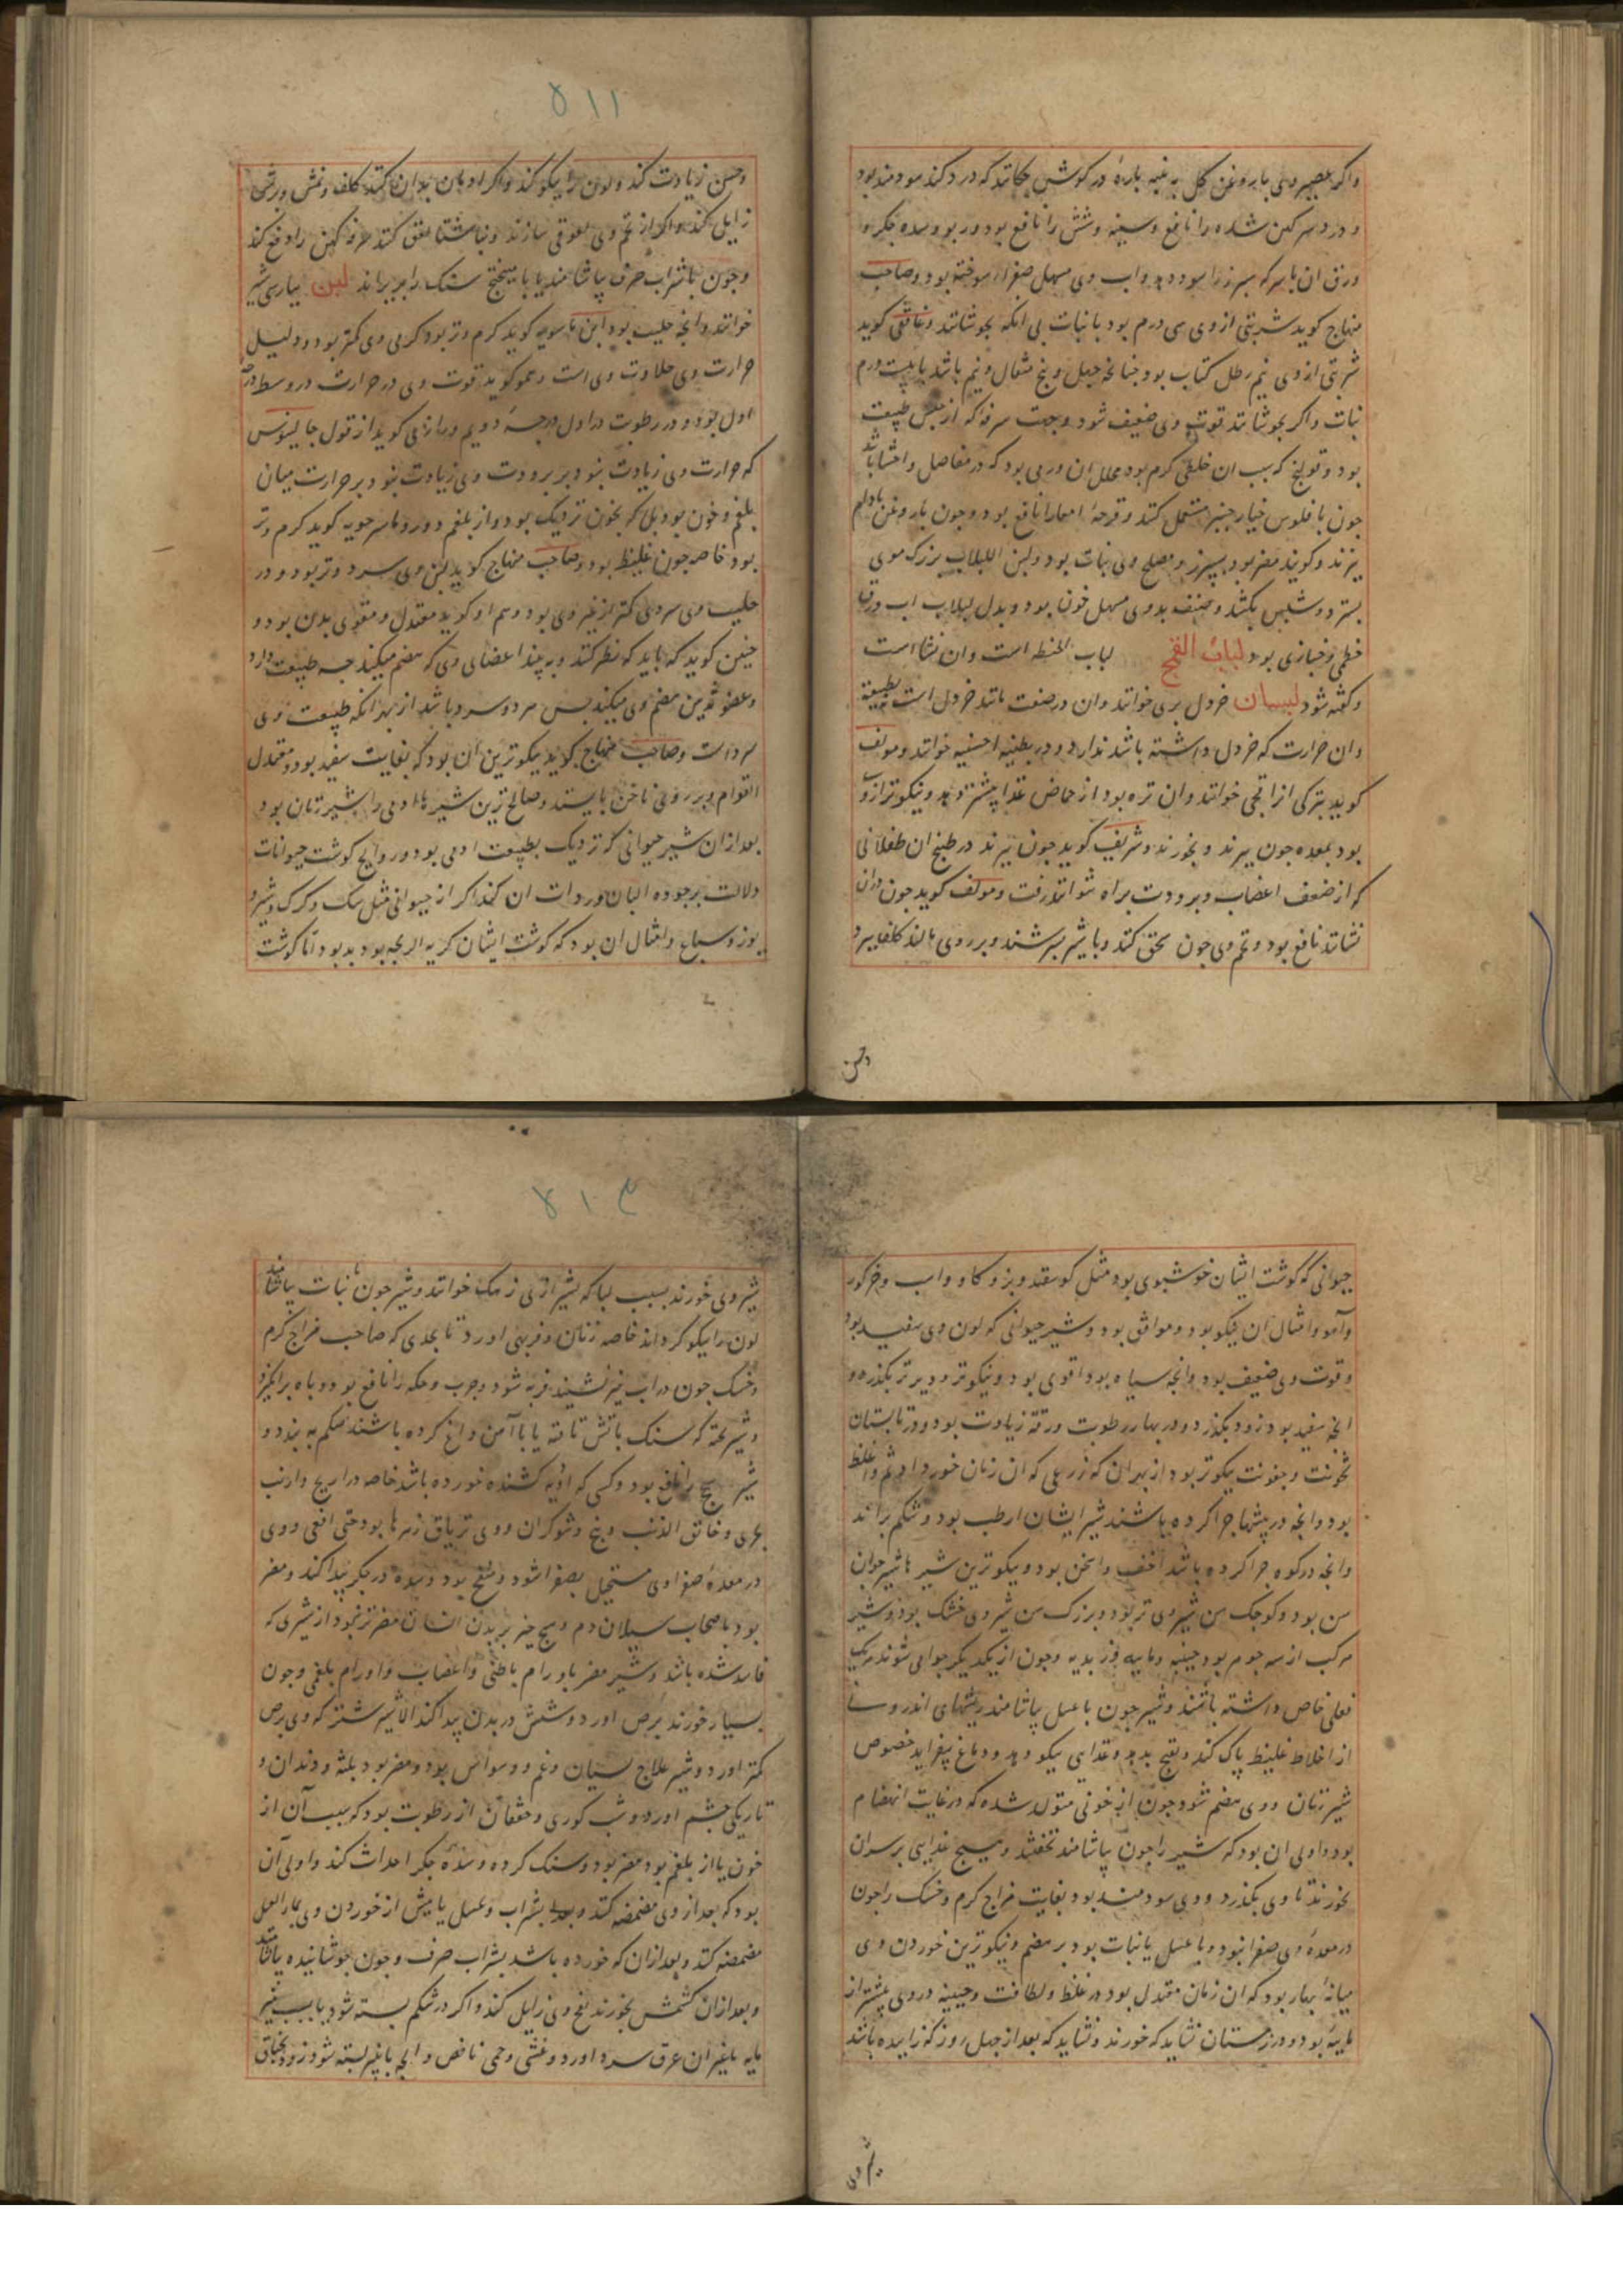 واکر عصیر وی با روغن کل به پنبه پارهٔ در کوش چکانند که درد کند سودمند بود
و درد سر کهن شده را نافع و سینه و شش را نافع بود و ربو و سده جکر و
ورق ان با سرکه سپرز را سود دهد و اب وی مسهل صفراء سوخته بود و صاحب
منهاج کوید شربتی از وی سی درم بود با نبات بی انکه بجوشانند و غافقی کوید
شربتی از وی نیم رطل کتاب بود جنانجه جهل و پنج مثقال و نیم باشد با بیست درم
نبات واکر بجوشانند قوت وی ضعیف شود و جهت سرفه که از یبس طبیعت
بود و قولنج که سبب ان خلطی کرم بود محلل ان ورمی بود که در مفاصل و احشا باشد
جون با فلوس خیار جنبر مستعمل کنند و قرحهٔ امعا را نافع بود و جون با روغن بادام
پزند و کویند مضر بود بسپرز و مصلح وی نبات بود و لبن اللبلاب بزرک موی
بسترد و شپش بکشد و صنف بدوی مسهل خون بود و بدل لبلاب اب ورق
خطمی و خبازی بود لباب القمح لباب الحنطه است و ان نشا است
و کفته شود لبسان خردل بری خوانند و ان در صفت مانند خردل است بطبیعة
و ان حرارت که خردل داشته باشد ندارد و در بطنیه احسنیه خوانند و مولف
کوید بترکی انرا قجی خوانند و ان تره بود از حماض غذا بیشتر دهد و نیکوتر ازو
بود بمعده جون بپزند و بخورند و شریف کوید جون بپزند در طبخ ان طفلانی
که از ضعف اعصاب و برودت براه نتوانند رفت و مولف کوید جون دران
نشانند نافع بود و تخم وی جون سحق کنند و با شیر بسرشند و بر روی مالند کلف ببرد
وحسن
۵۱۱
وحسن زیادت کند و لون را نیکو کند واکر ادمان بدان کنند کلف و نمش و برش
زایل کند واکر از تخم وی لعوقی سازند و بناشتا لعق کنند سرفه کهن را دفع کند
و جون با شراب صرف بیاشامند یا با میبختج سنک را بریزاند لبن بپارسی شیر
خوانند و انجه حلیب بود ابن ماسویه کوید کرم و تر بود کرمی وی کمتر بود و دلیل
حرارت وی حلاوت وی است و عمو کوید قوت وی در حرارت در وسط درجهٔ
اول بود و در رطوبت در اول درجهٔ دویم و رازی کوید از قول جالینوس
که حرارت وی زیادت نبود بر برودت وی زیادت نبود بر حرارت میان
بلغم و خون بود بلکه بخون نزدیک بود و از بلغم دور و ماسرجویه کوید کرم و تر
بود خاصه جون غلیظ بود و صاحب منهاج کوید لبن وی سرد و تر بود و در
حلیب وی سردی کمتر از غیر وی بود و هم او کوید معتدل و مقوی بدن بود و
حنین کوید که باید که نظر کنند و به بیند اعضای وی که هضم میکند جه طبیعت دارد
و عضو ثدیین هضم وی میکند پس سرد و سرد باشد از بهر انکه طبیعت وی
سرد است و صاحب منهاج کوید نیکوترین ان بود که بغایت سفید بود و معتدل
القوام و بر روی ناخن بایستد و صالح ترین شیرها ادمی را شیر زنان بود
بعد از ان شیر حیوانی که نزدیک بطبیعت ادمی بود و روایح کوشت حیوانات
دلالت بر جوده البان و ردات ان کند اکر از حیوانی مثل سک و کرک و شیر و
یوز و سباع و امثال ان بود که کوشت ایشان کریه الریحه بود بد بود اما کوشت
حیوانی که کوشت ایشان خوشبوی بود مثل کوسفند و بز و کاو و اسب و خر کور
وآهو و امثال ان نیکو بود و موافق بود و شیر حیوانی که لون وی سفید بود
و قوت وی ضعیف بود و انجه سیاه بود اقوی بود و نیکوتر و دیرتر بکذرد و
انجه سفید بود زود بکذرد و در بهار رطوبت و رقة زیادت بود و در تابستان
ثخونت و عفونت نیکوتر بود از بهر ان که زرعی که ان زمان خورد ادسم و اغلظ
بود و انجه در پشتها جرا کرده باشند شیر ایشان ارطب بود و شکم براند
وانجه در کوه جرا کرده باشد اخف و اسخن بود و نیکوترین شیرها شیر جوان
سن بود و کوجک سن شیر وی تر بود و بزرک سن شیر وی خشک بود و شیر
مرکب از سه جوهر بود جبنیه و ماییه و زبدیه و جون از یکدیکر جدا می شوند هریک
فعلی خاص داشته باشند و شیر جون با عسل بیاشامند ریشهای اندرونی
از اخلاط غلیظ پاک کند و نضج بدهد و غذایی نیکو دهد و دماغ بیفزاید خصوص
شیر زنان و وی هضم شود جون از خونی متولد شده که در غایت انهضام
بود و اولی ان بود که شیر را جون بیاشامند نخفتند و هیج غذایی بر سر ان
نخورند تا وی بکذرد و وی سودمند بود بغایت مزاج کرم و خشک را جون
در معدهٔ وی صفرا نبود و با عسل یا نبات بود بر هضم و نیکوترین خوردن وی
میانهٔ بهار بود که ان زمان معتدل بود در غلظ و لطافت و جبنیه در وی بیشتر از
ماییه بود و در زمستان نشاید که خورند و نشاید که بعد از جهل روز که زاییده باشد
شیر وی
۵۱۲
شیر وی خورند بسبب لبا که شیرازی زهک خوانند و شیر جون با نبات بیاشامند
لون را نیکو کرداند خاصه زنان و فربهی اورد تا بحدی که صاحب مزاج کرم
و خشک جون در اب نیز نشیند فربه شود و جرب و حکه را نافع بود و باه برانکیزد
و شیر بخته که سنک باتش تافته یا با آهن داغ کرده باشند شکم به بندد و
شیر سحج را نافع بود و کسی که ادویه کشنده خورده باشد خاصه ذراریح و ارنب
بحری و خانق الذئب و بنج و شوکران و وی تریاق زهرها بود حتی افعی و وی
در معدهٔ صفراوی مستحیل بصفرا شود و منفخ بود و سده در جکر پیدا کند و مضر
بود باصحاب سیلان دم و هیج جیز ببدن انسان مضرتر نبود از شیری که
فاسد شده باشد و شیر مضر باورام باطنی و اعصاب و اورام بلغمی و جون
بسیار خورند برص اورد و شپش در بدن پیدا کند الا شیر شتر که وی برص
کمتر اورد و شیر علاج نسیان و غم و وسواس بود و مضر بود بلثه و دندان و
تاریکی جشم اورد و شب کوری و خفقان از رطوبت بود که سبب آن از
خون یا از بلغم بود مضر بود و سنک کرده و سدهٔ جکر احداث کند و اولی آن
بود که بعد از وی مضمضه کنند و بعد بشراب و عسل یا پیش از خوردن وی بماء العسل
مضمضه کنند و بعد از ان که خورده باشد بشراب صرف و جون جوشانیده بیاشامند
و بعد ازان کشمش بخورند نفخ وی زایل کند واکر در شکم بسته شود یا بسبب پنیر
مایه یا غیر ان عرق سرد اورد و غشی و حمی نافض و انجه با پنیر بسته شود زود بخناق